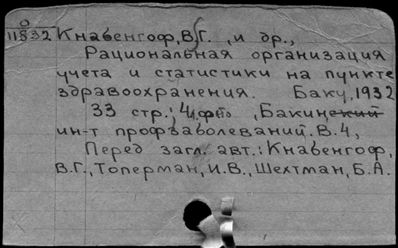 О
11832 Кнабенгоф, В.Г. и др.,
Рациональная организация
учета и статистики на пункте
здравоохранения. Баку, 1932
33 стр.; 4°, Бакинский
ин-т профзаболеваний. В. 4,
Перед загл. авт.: Кнабенгоф,
В.Г., Топерман, И.В., Шехтман, Б.А.